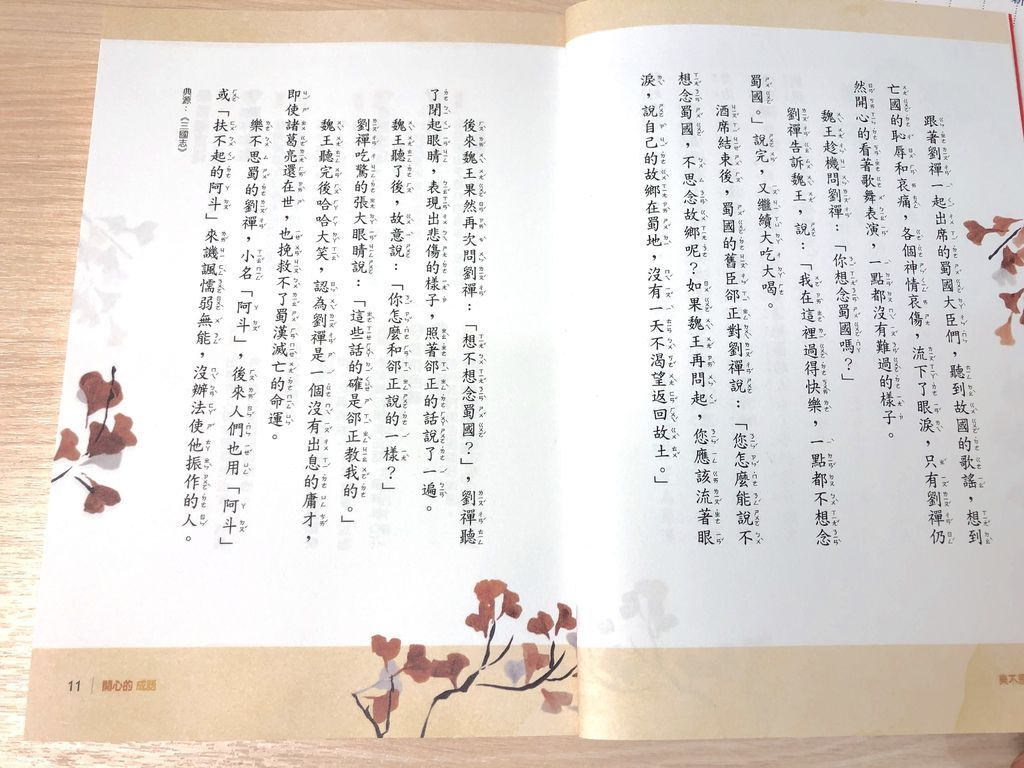 跟著劉禪一起出席的蜀國大臣們，聽到故國的歌謠，想到
亡國的恥辱和哀痛，各個神情哀傷，流下了眼淚，只有劉禪仍
然開心的看著歌舞表演，一點都沒有難過的樣子。
魏王趁機問劉禪：「你想念蜀國嗎？」
劉禪告訴魏王，說：「我在這裡過得快樂，一點都不想念
蜀國。」說完，又繼續大吃大喝。
酒席結束後，蜀國的舊臣郤正對劉禪說：「您怎麼能說不
想念蜀國，不思念故鄉呢？如果魏王再問起，您應該流著眼
淚，說自己的故鄉在蜀地，沒有一天不渴望返回故土。」
後來魏王果然再次問劉禪：「想不想念蜀國？」，劉禪聽
了閉起眼睛，表現出悲傷的樣子，照著郤正的話說了一遍。
魏王聽了後，故意說：「你怎麼和郤正說的一樣？」
劉禪吃驚的張大眼睛說：「這些話的確是郤正教我的。」
魏王聽完後哈哈大笑，認為劉禪是一個沒有出息的庸才，
即使諸葛亮還在世，也挽救不了蜀漢滅亡的命運。
樂不思蜀的劉禪，小名「阿斗」，後來人們也用「阿斗」
或「扶不起的阿斗」來譏諷懦弱無能，沒辦法使他振作的人。
典源：《三國志》
11｜開心的 成語